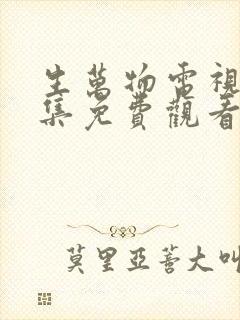 生萬物電視
集免費觀看
莫里亞蒼大叫